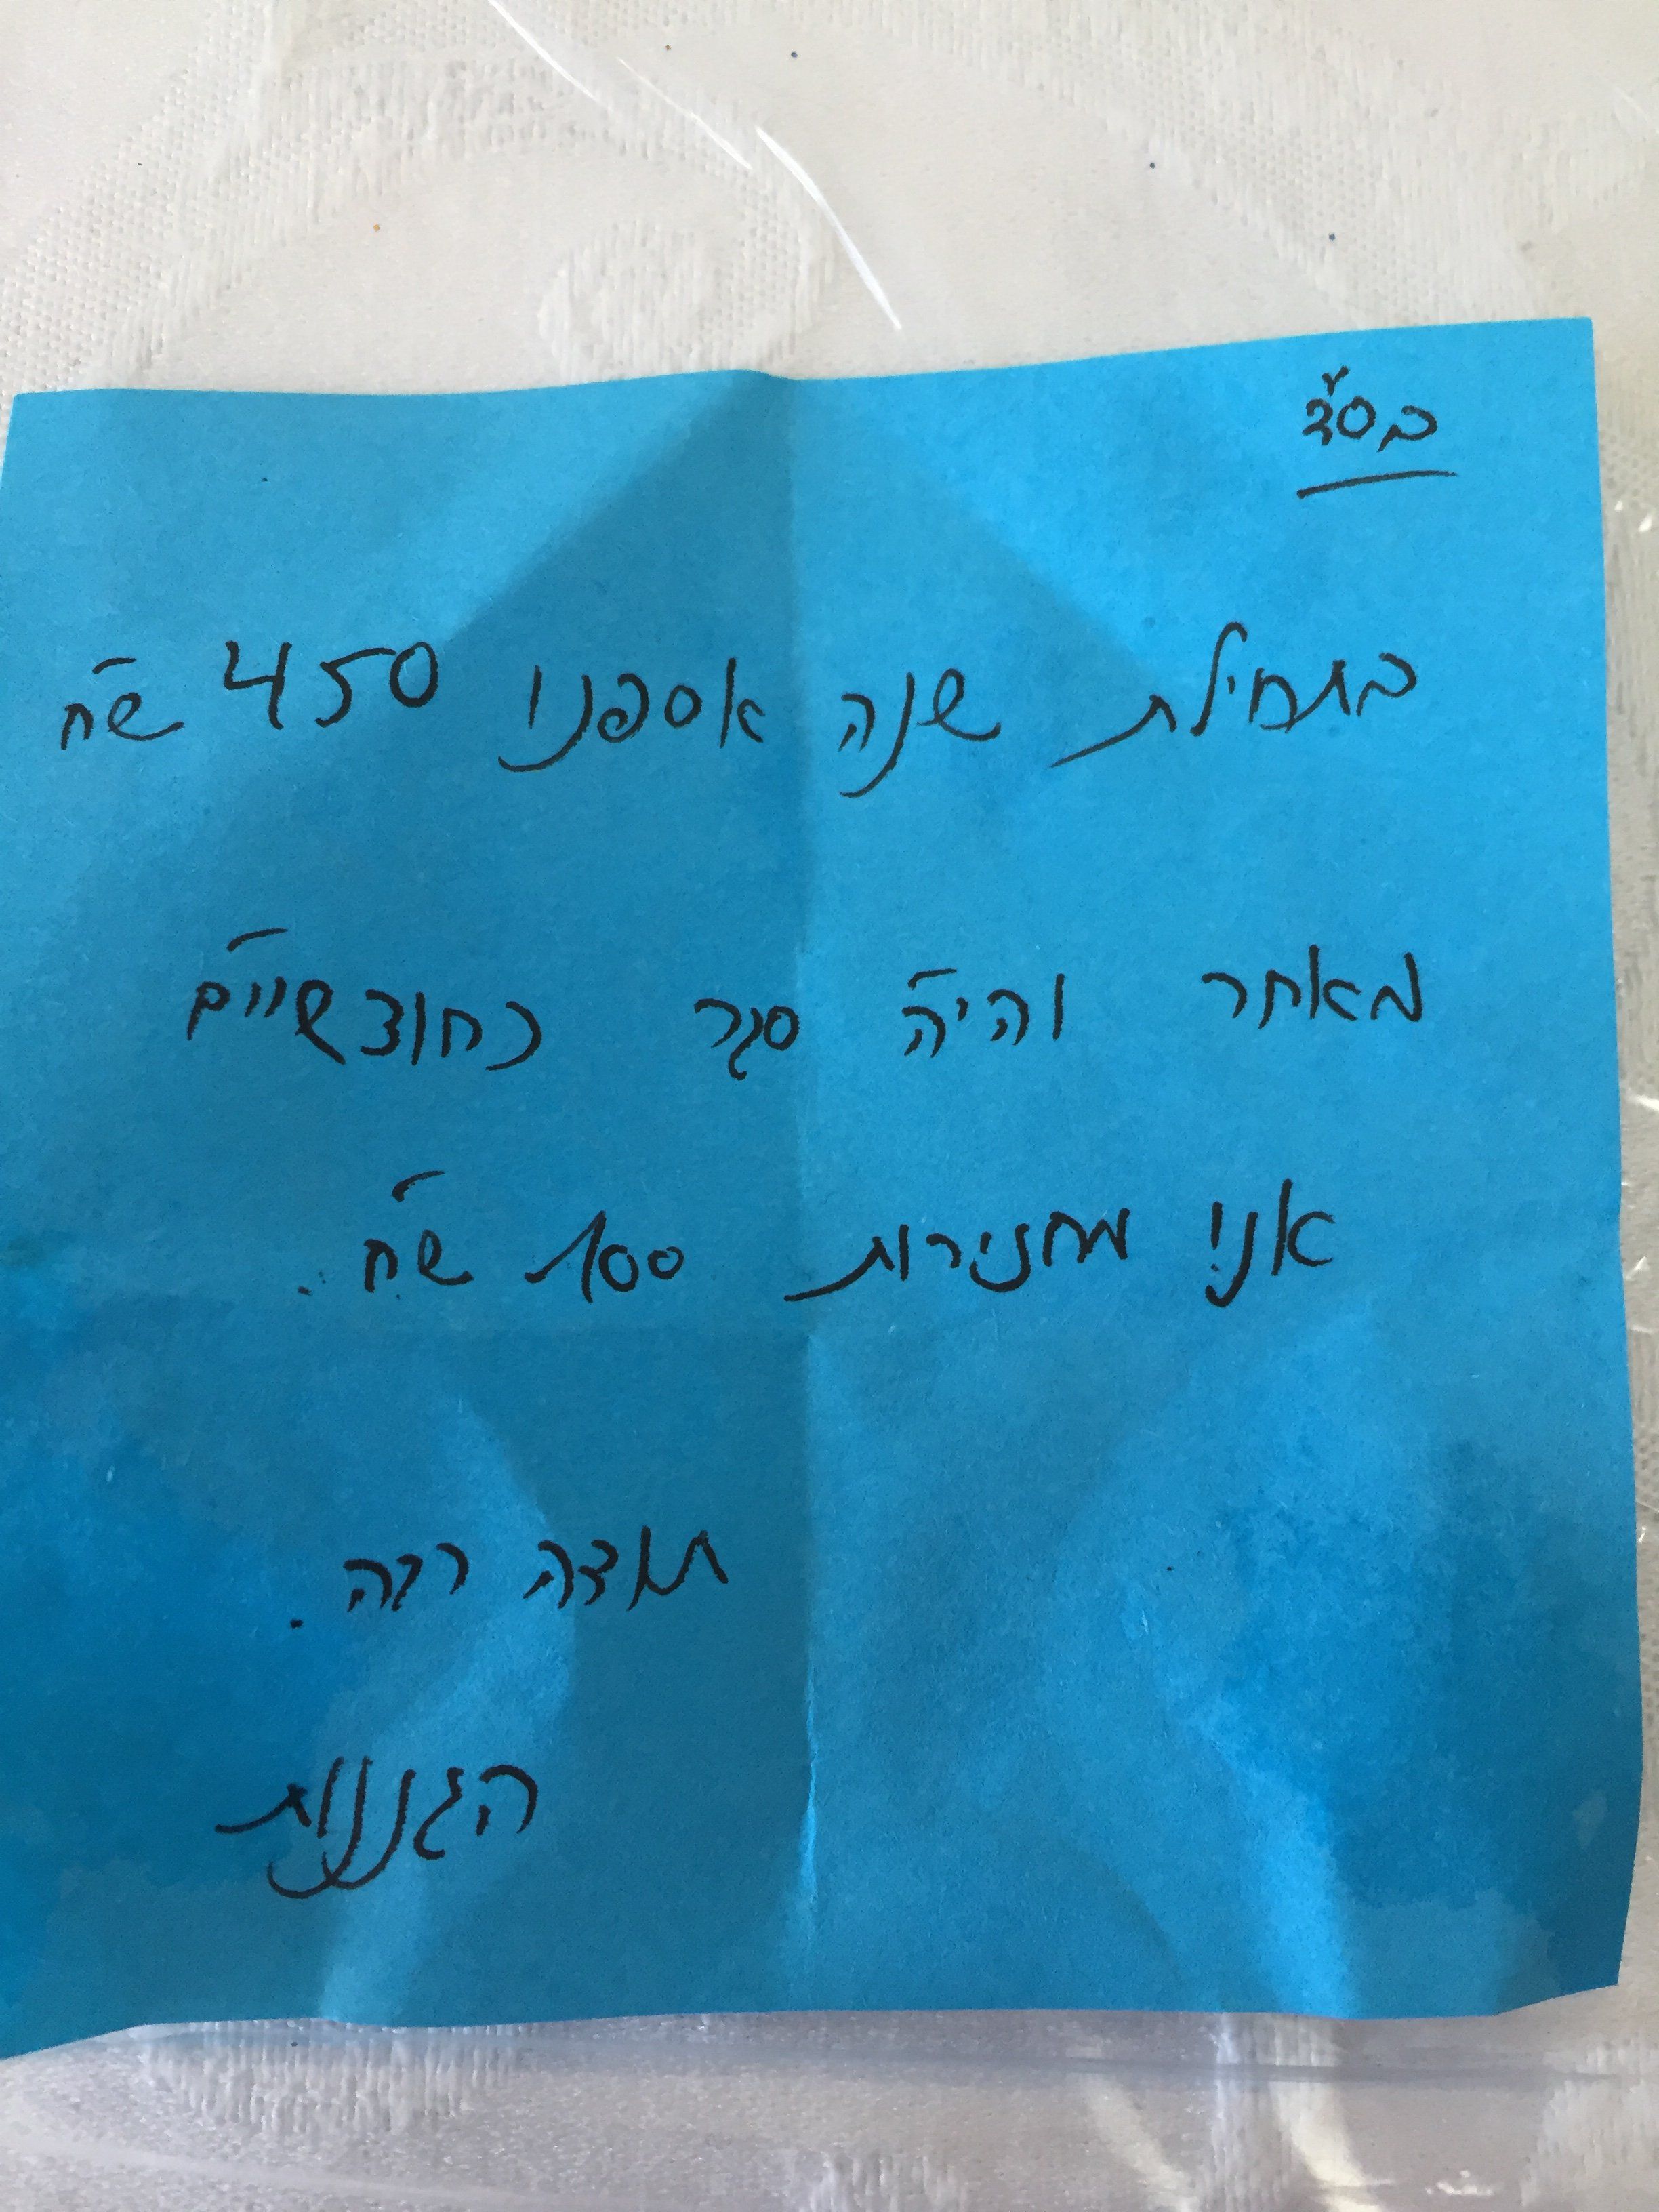 בס"ד
בתחילת שנה אספנו 450 ש"ח
מאחר והי"ה סגר כחודשיי"ם
אני מחזירות 100 ש"ח.
תודה רבה.
הגננות